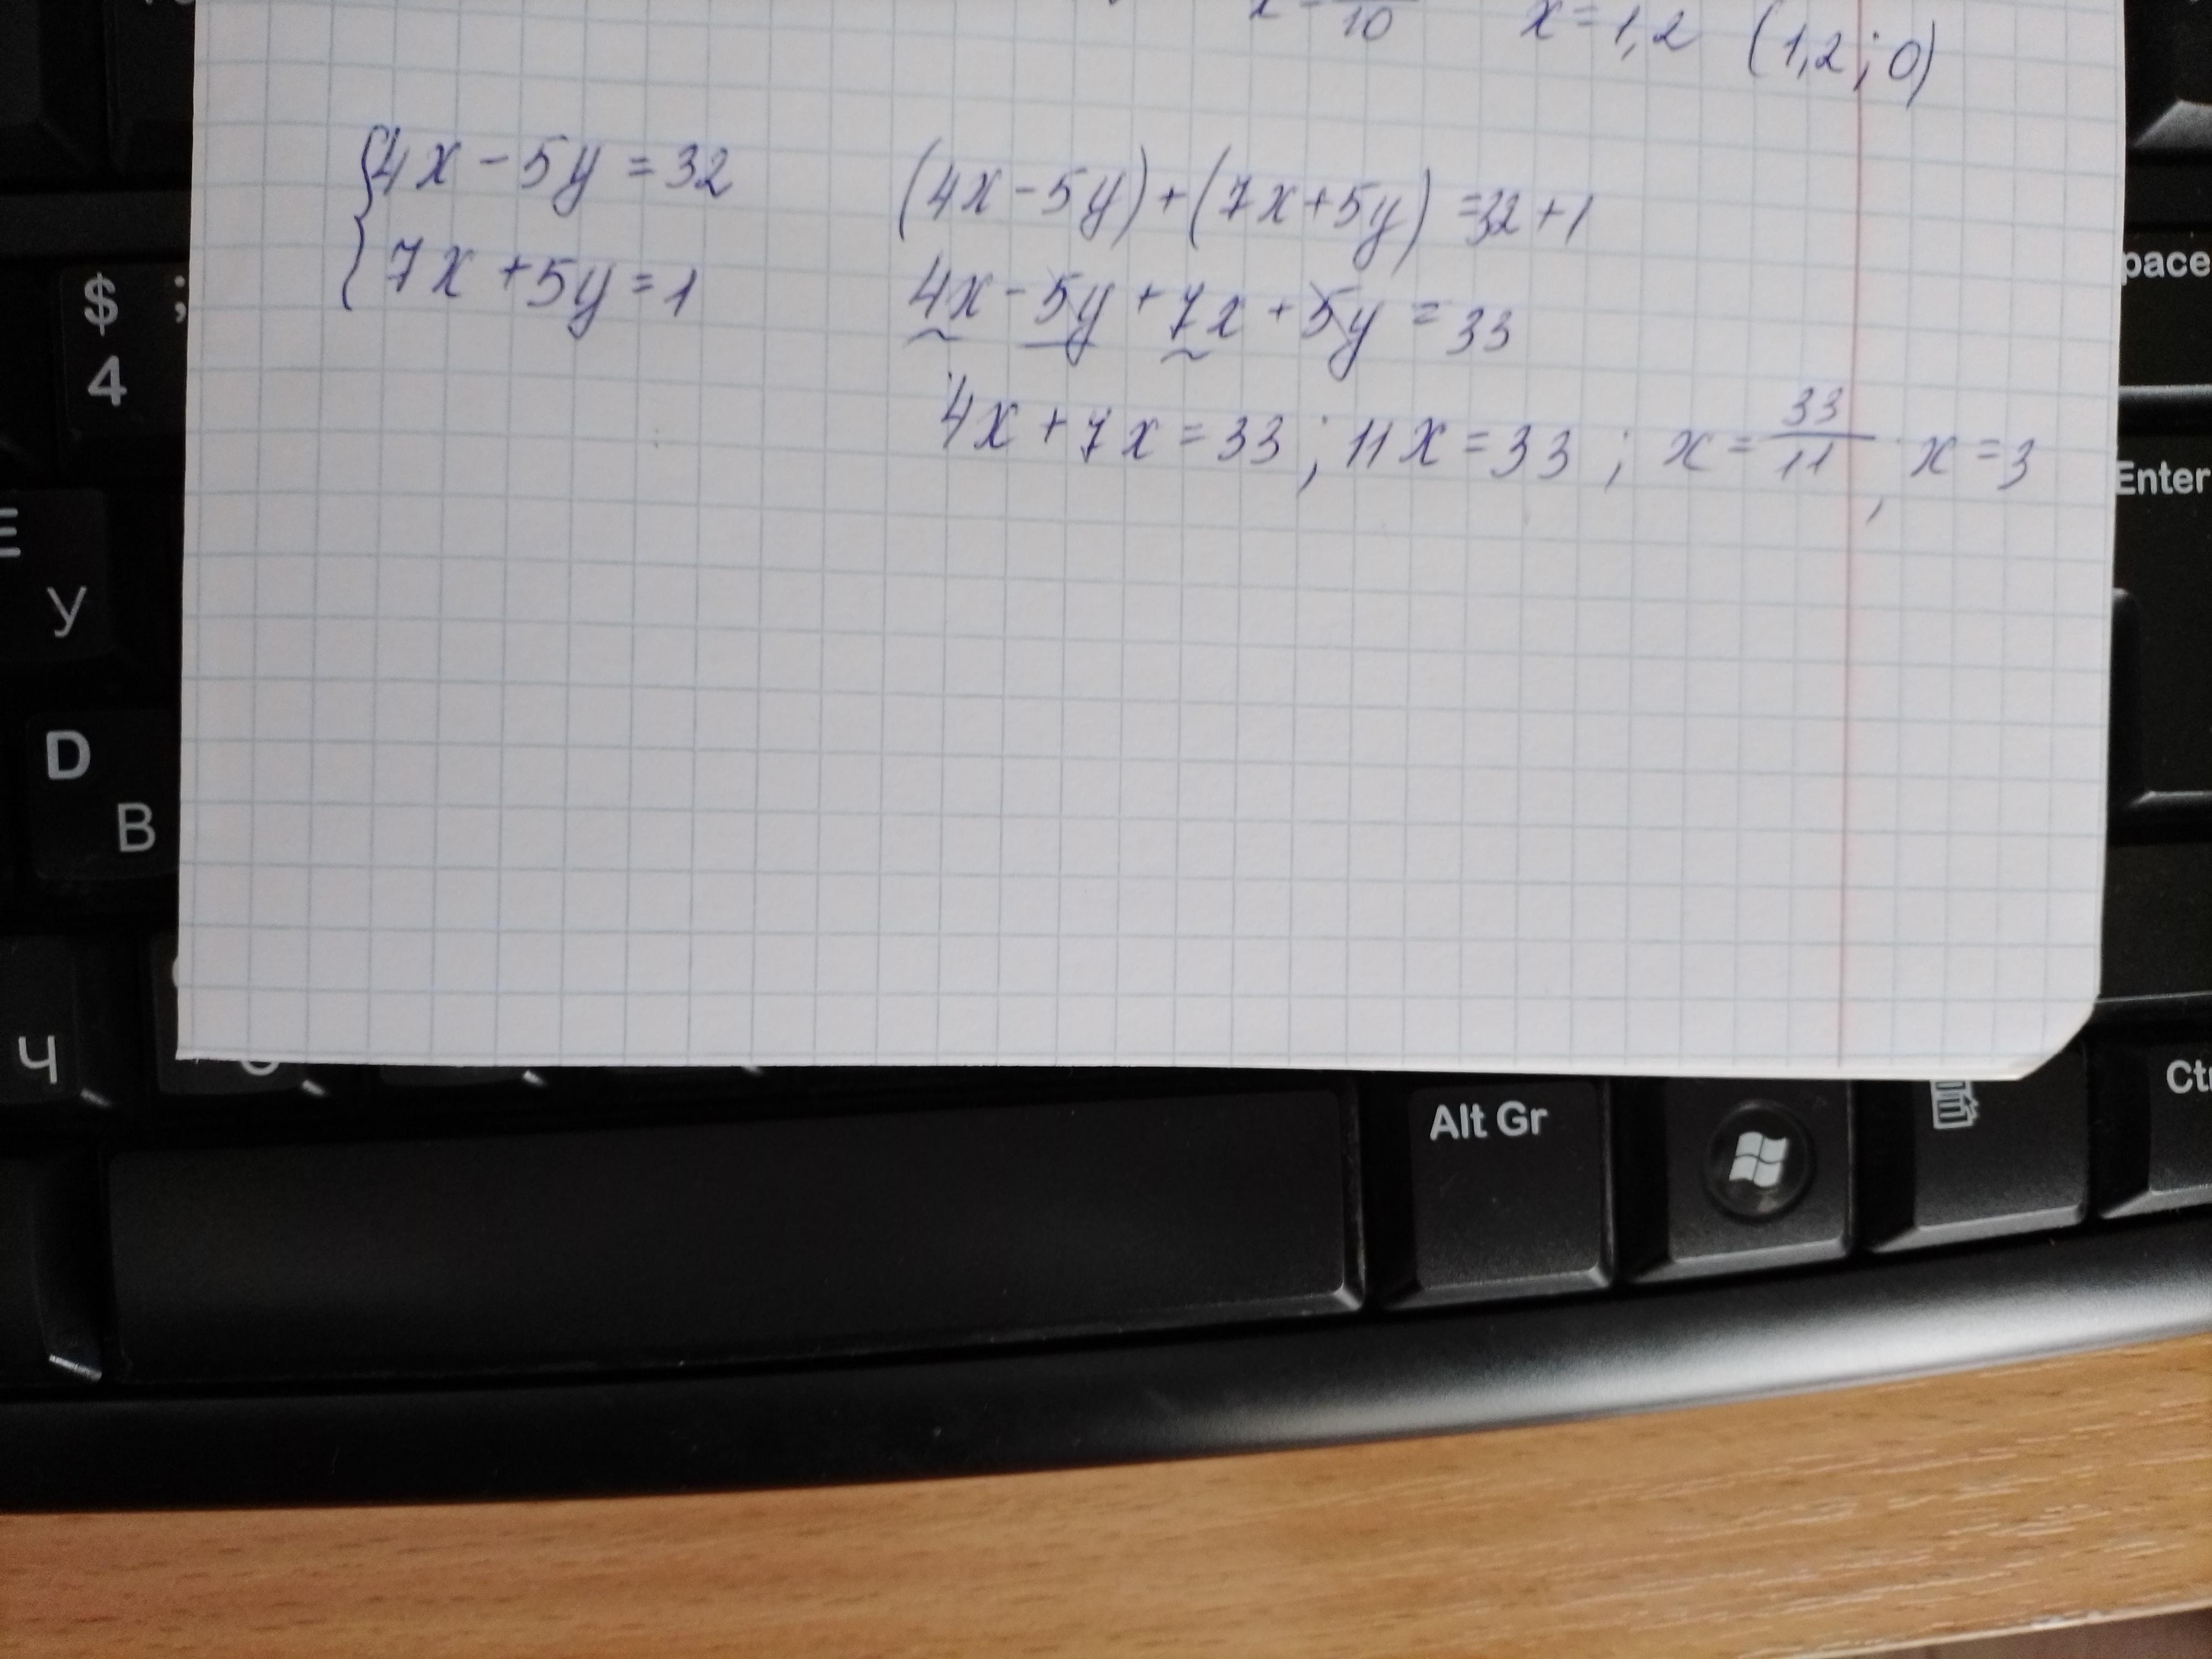 10 x = 1,2 (1,2; 0)
{4x - 5y = 32
{7x + 5y = 1
(4x - 5y) + (7x + 5y) = 32 + 1
4x - 5y + 7x + 5y = 33
4x + 7x = 33; 11x = 33; x = 33/11, x = 3
$ ;
4
pace
Enter
У
D
В
Ч
Alt Gr
Ctr